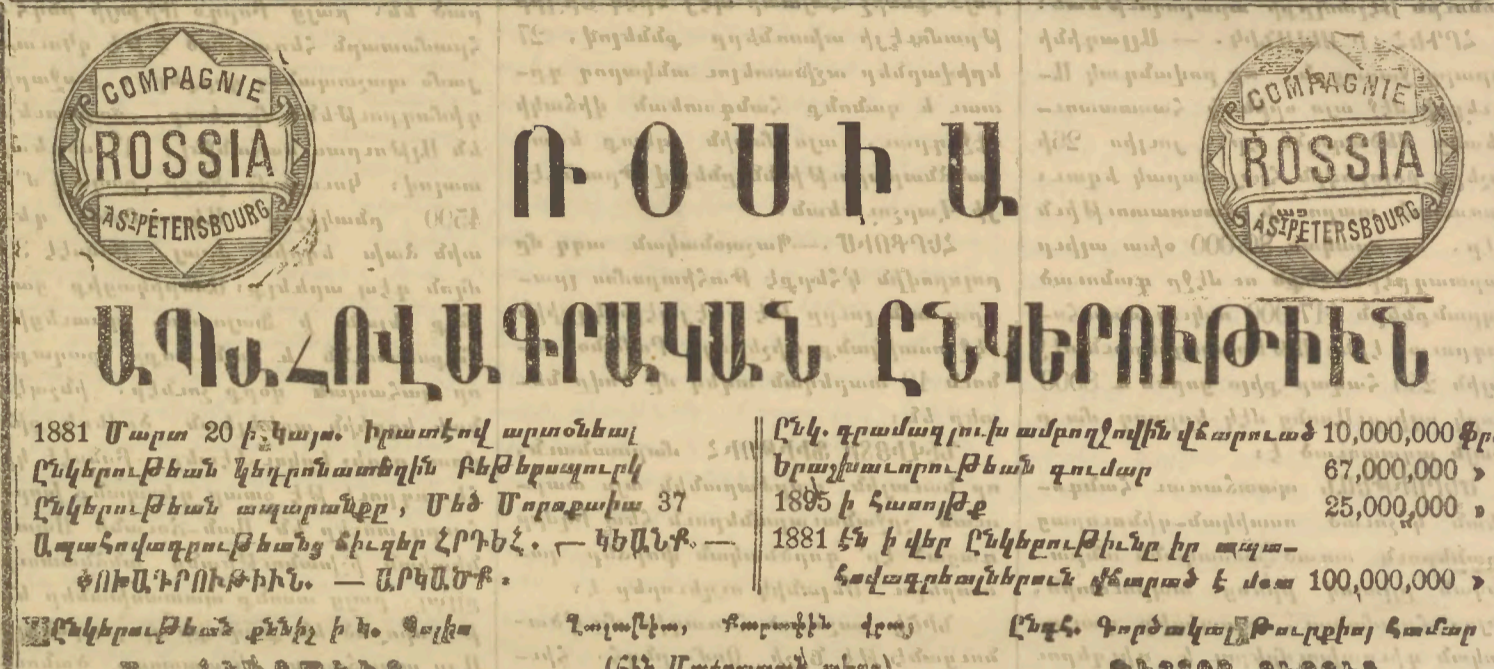 COMPAGNIE
ROSSIA
À ST PÉTERSBOURG
COMPAGNIE
ROSSIA
À ST PÉTERSBOURG
ՌՕՍԻԱ
ԱՊԱՀՈՎԱԳՐԱԿԱՆ ԸՆԿԵՐՈՒԹԻՒՆ
1881 Մարտ 20 ի կայս. հրատէով արտօնեալ
Ընկերութեան կեդրոնատեղին Բեթեքսպուրկ
Ընկերութեան ապարանքը, Մեծ Մորսքայիա 37
Ապահովագրութեանց ճիւղեր ՀՐԴԵՀ. — ԿԵԱՆՔ. —
ՓՈԽԱԴՐՈՒԹԻՒՆ. — ԱՐԿԱԾՔ.
Ընկ. դրամագլուխ ամբողջովին վճարուած 10,000,000 ֆր
Երաշխաւորութեան գումար 67,000,000 »
1895 ի հասոյթք 25,000,000 »
1881 էն ի վեր Ընկերութիւնը իր ապա-
հովագրեալներուն վճարած է մօտ 100,000,000 »
Ընկերութեան քննիչ ի Կ. Պոլիս
Ղալաթիա, Քարաքէօյ վրայ
Ընդհ. Գործակալ Թուրքիոյ համար